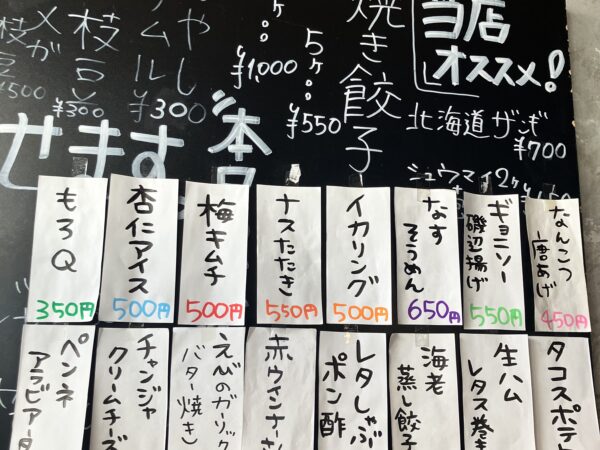 当店
オススメ!
北海道ザンギ
¥700
シュウマイ2ヶ
焼き餃子
5ヶ
¥550
¥1,000
¥300
枝豆
¥300
¥500
せます
もろQ
350円
杏仁アイス
500円
梅キムチ
500円
ナスたたき
550円
イカリング
500円
なす
そうめん
650円
ギョニソー
磯辺揚げ
550円
なんこつ
唐あげ
450円
ペンネ
アラビアータ
チャンジャ
クリームチーズ
えびのガーリック
バター焼き
赤ウインナー
レタしゃぶ
ポン酢
海老
蒸し餃子
生ハム
レタス巻き
タコスポテト